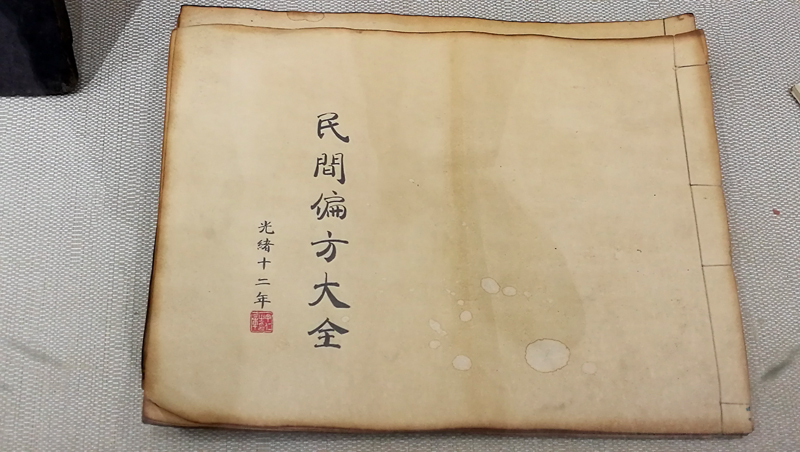 民間偏方大全
光緒十二年